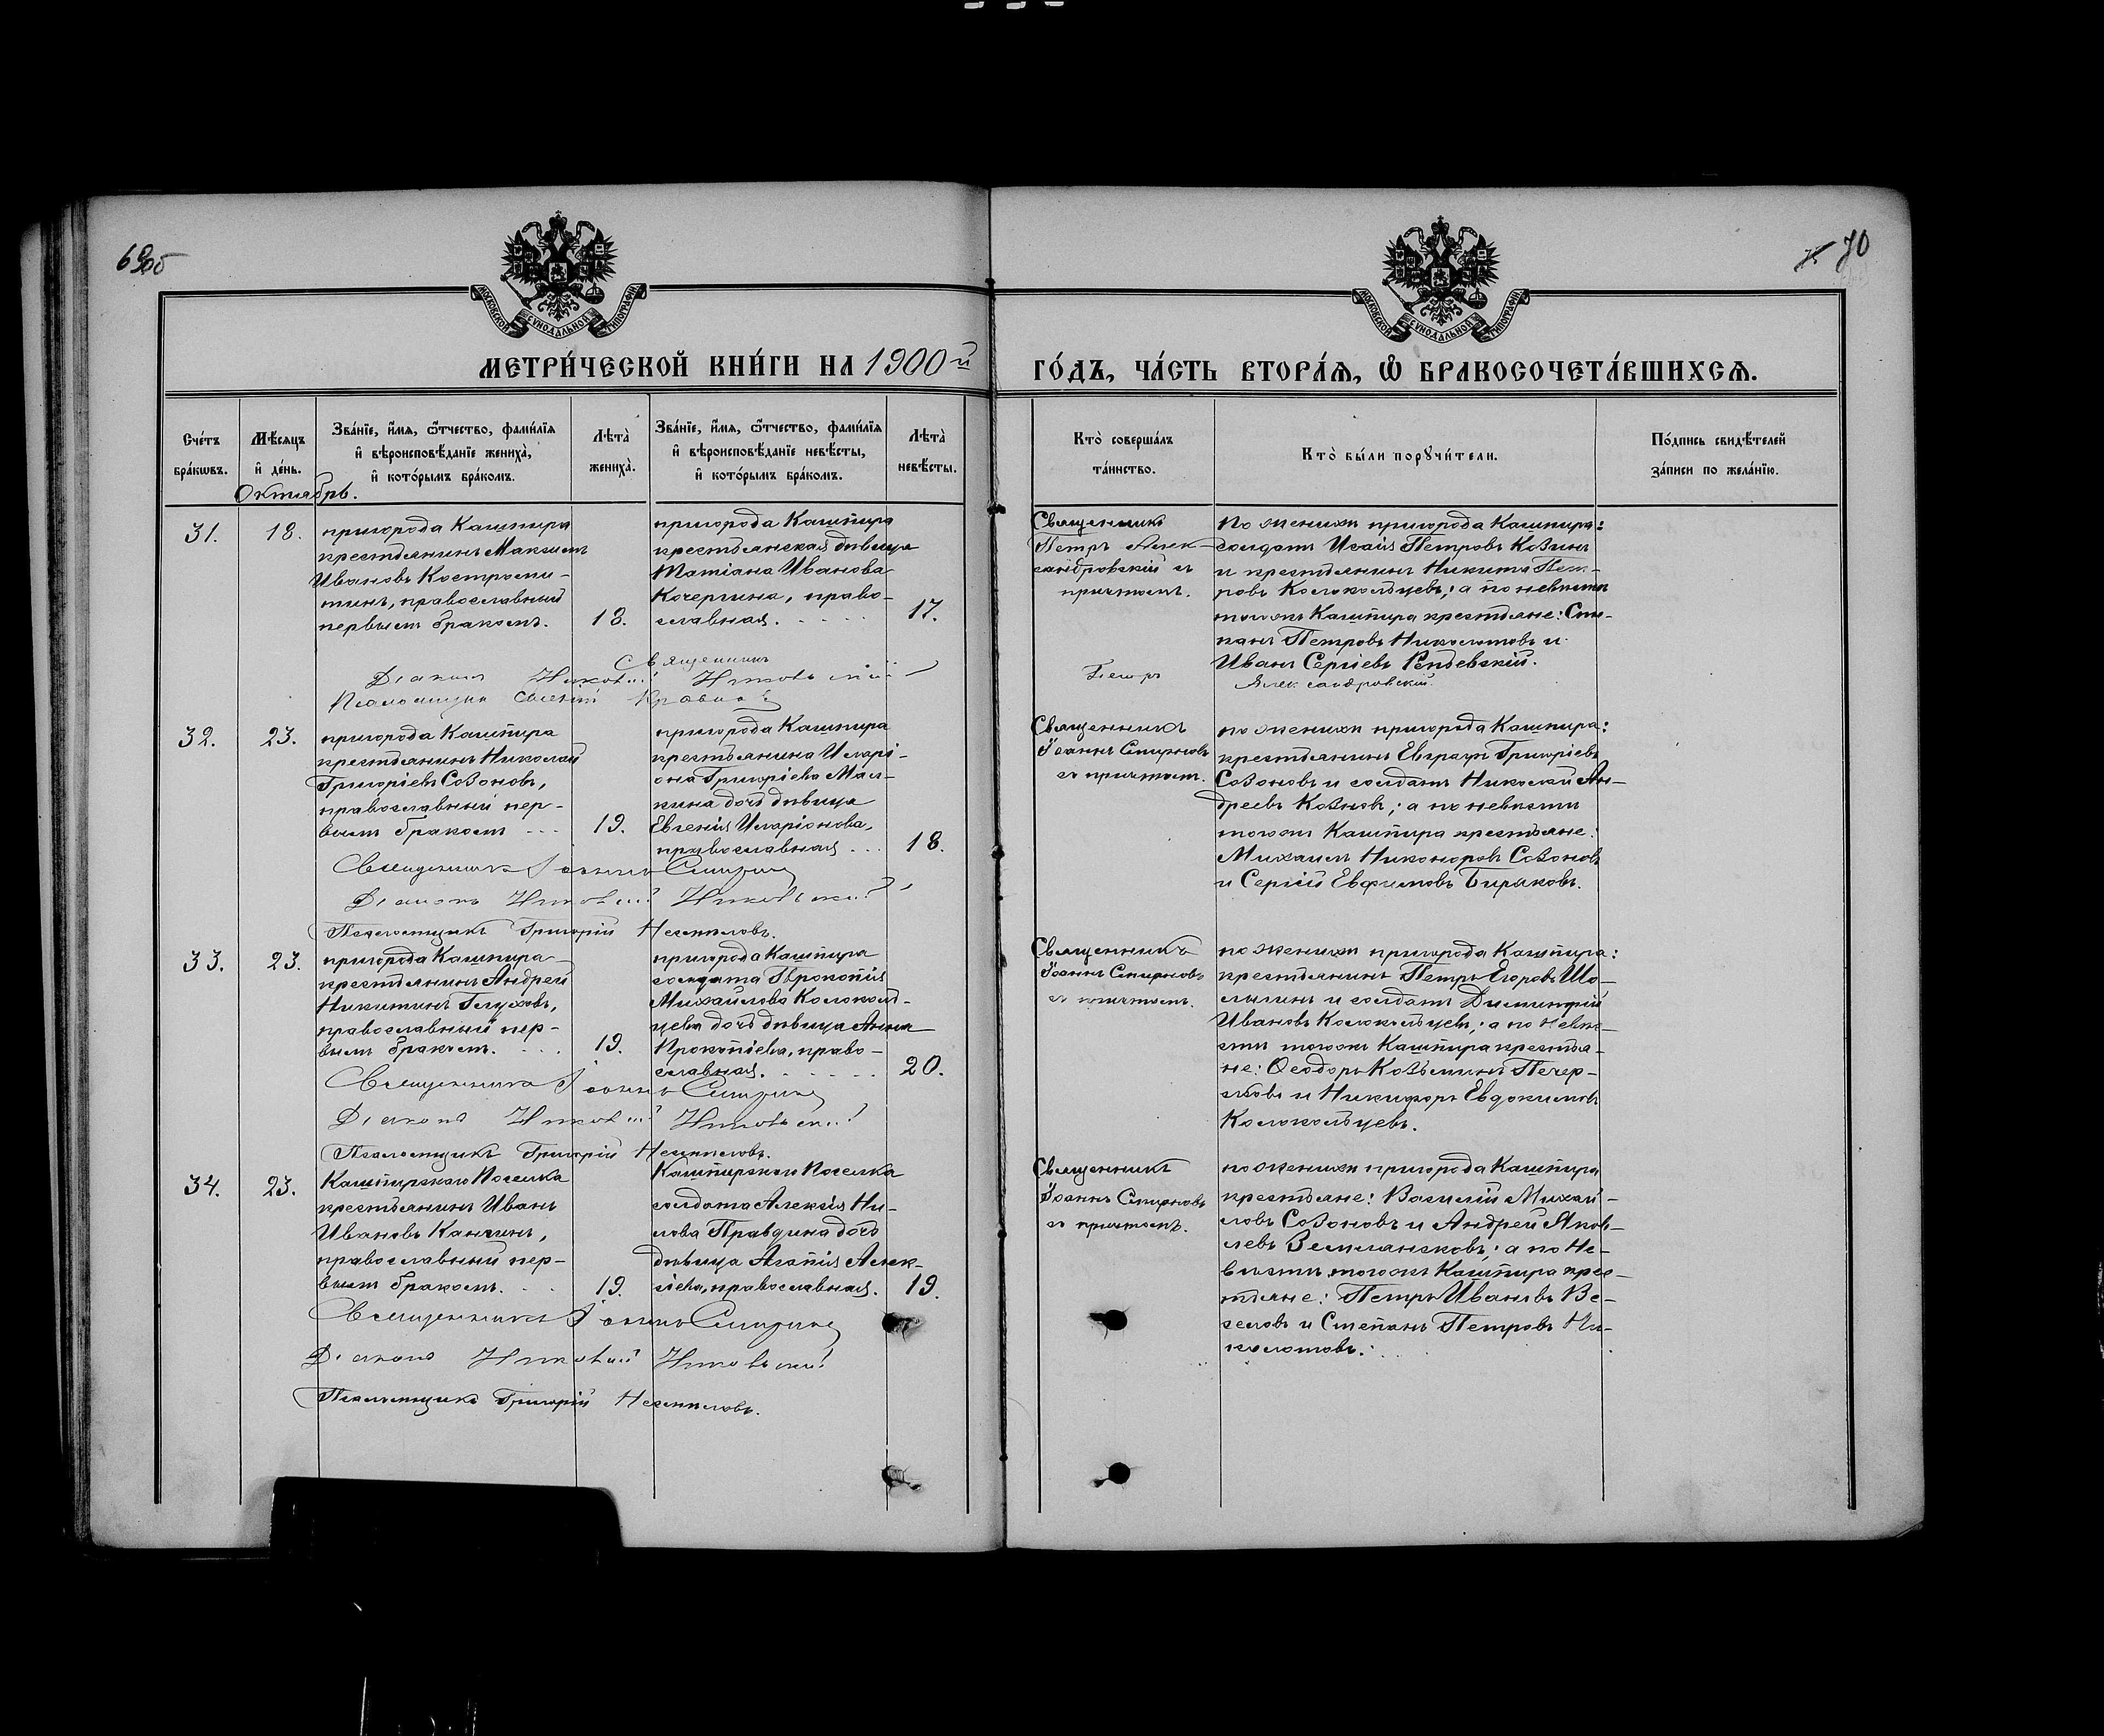 69об
70
МОСКОВСКОЙ СУНОДАЛЬНОЙ ТИПОГРАФІИ
МОСКОВСКОЙ СУНОДАЛЬНОЙ ТИПОГРАФІИ
МЕТРИ́ЧЕСКОЙ КНИ́ГИ НА 1900й
ГО́ДЪ, ЧА́СТЬ ВТОРА́Ѧ, Ѽ БРАКОСОЧЕТА́ВШИХСѦ.
Сче́тъ бра́кѡвъ.
Мѣ́сѧцъ и҆ де́нь.
Зва́нїе, и҆́мѧ, ѻ҆́тчество, фами́лїѧ
и҆ вѣроисповѣ́данїе жениха̀,
и҆ кото́рымъ бра́комъ.
Лѣта̀ жениха̀.
Зва́нїе, и҆́мѧ, ѻ҆́тчество, фами́лїѧ
и҆ вѣроисповѣ́данїе невѣ́сты,
и҆ кото́рымъ бра́комъ.
Лѣта̀ невѣ́сты.
Кто̀ соверша́лъ
та́инство.
Кто̀ бы́ли порꙋчи́тели.
По́дпись свидѣ́телей
за́писи по жела́нїю.
Октябрь.
31.
18.
пригорода Кашпира
крестьянинъ Максимъ
Ивановъ Костроми-
тинъ, православный
первымъ бракомъ.
18.
пригорода Кашпира
крестьянская дѣвица
Татіана Иванова
Кочергина, право-
славная.
17.
Священникъ
Петръ Алек-
сандровскій съ
причтомъ.
по женихѣ пригорода Кашпира:
солдатъ Исаія Петровъ Козинъ
и крестьянинъ Никита Пет-
ровъ Колокольцевъ; а по невѣстѣ
тогожъ Кашпира крестьяне: Сте-
панъ Петровъ Николотовъ и
Иванъ Сергіевъ
Священникъ Петръ Александровскій.
Діаконъ Николай
Псаломщикъ
32.
23.
пригорода Кашпира
крестьянинъ Николай
Григоріевъ Созоновъ,
православный пер-
вымъ бракомъ
19.
пригорода Кашпира
крестьянина Иларі-
она Григоріева Мал-
кина дочь дѣвица
Евгенія Иларіонова,
православная
18.
Священникъ
Іоаннъ Смирновъ
съ причтомъ.
по женихѣ пригорода Кашпира:
крестьянинъ Евграфъ Григоріевъ
Созоновъ и солдатъ Николай Ан-
дреевъ Козновъ; а по невѣстѣ
тогожъ Кашпира крестьяне:
Михаилъ Никоноровъ Созоновъ
и Сергій Евфимовъ Бирюковъ.
Священникъ Іоаннъ Смирновъ
Діаконъ Николай
Псаломщикъ Григорій
33.
23.
пригорода Кашпира
крестьянинъ Андрей
Никитинъ Глуховъ,
православный пер-
вымъ бракомъ.
19.
пригорода Кашпира
солдата Прокопія
Михайлова Колоколь-
цева дочь дѣвица Анна
Прокопіева, право-
славная.
20.
Священникъ
Іоаннъ Смирновъ
съ причтомъ.
по женихѣ пригорода Кашпира:
крестьянинъ Петръ Егоровъ Шо-
слынинъ и солдатъ Димитрій
Ивановъ Колокольцевъ; а по невѣ-
стѣ тогожъ Кашпира крестья-
не: Ѳеодоръ Козьминъ Печер-
сковъ и Никифоръ Евдокимовъ
Колокольцевъ.
Священникъ Іоаннъ Смирновъ
Діаконъ Николай
Псаломщикъ Григорій
34.
23.
Кашпирскаго Поселка
крестьянинъ Иванъ
Ивановъ Канчинъ,
православный пер-
вымъ бракомъ.
19.
Кашпирскаго Поселка
солдата Алексія Ни-
лова Правдина дочь
дѣвица Агапія Алек-
сіева, православная.
19.
Священникъ
Іоаннъ Смирновъ
съ причтомъ.
по женихѣ пригорода Кашпира
крестьяне: Василій Михай-
ловъ Созоновъ и Андрей Яков-
левъ Землянсковъ; а по не-
вѣстѣ тогожъ Кашпира крес-
тьяне: Петръ Ивановъ Ве-
селовъ и Степанъ Петровъ Ни-
колотовъ.
Священникъ Іоаннъ Смирновъ
Діаконъ Николай
Псаломщикъ Григорій